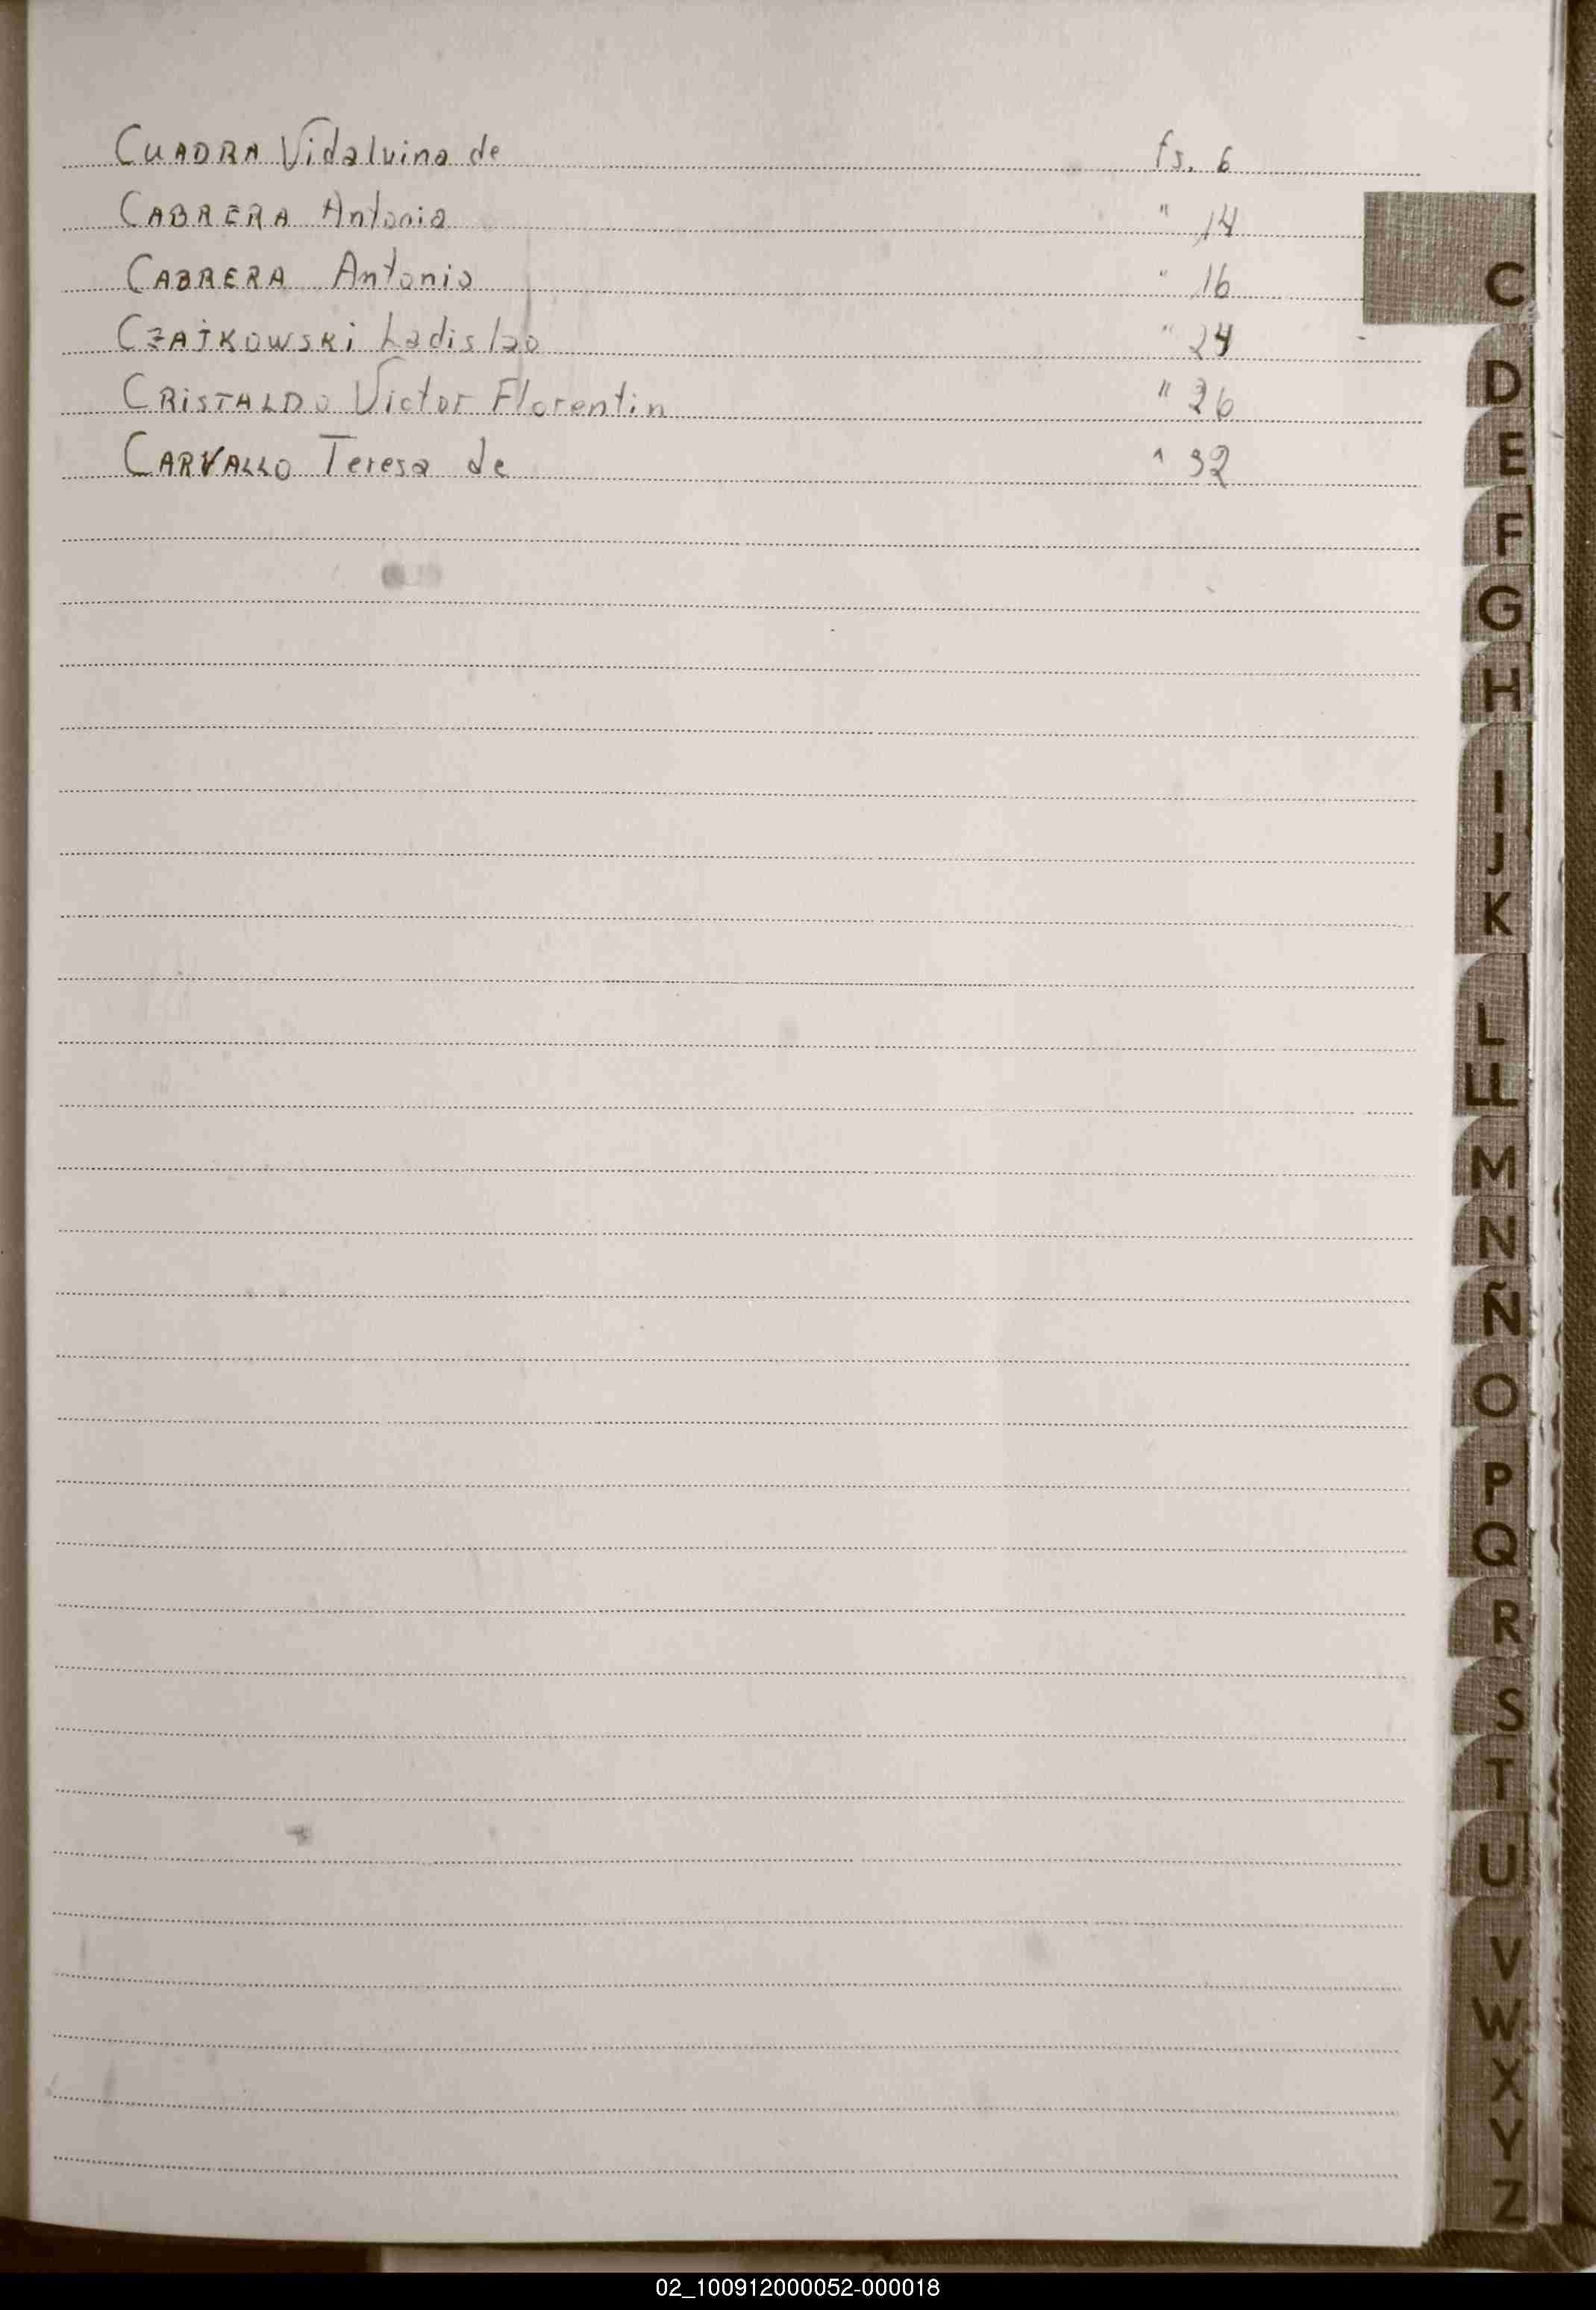 CUADRA Vidalvina de fs. 6
CABRERA Antonia " 14
CABRERA Antonio " 16
CZAJKOWSKI Ladislao " 24
CRISTALDO Victor Florentin " 26
CARVALLO Teresa de " 32
C
D
E
F
G
H
I
J
K
L
LL
M
N
Ñ
O
P
Q
R
S
T
U
V
W
X
Y
Z
02_100912000052-000018